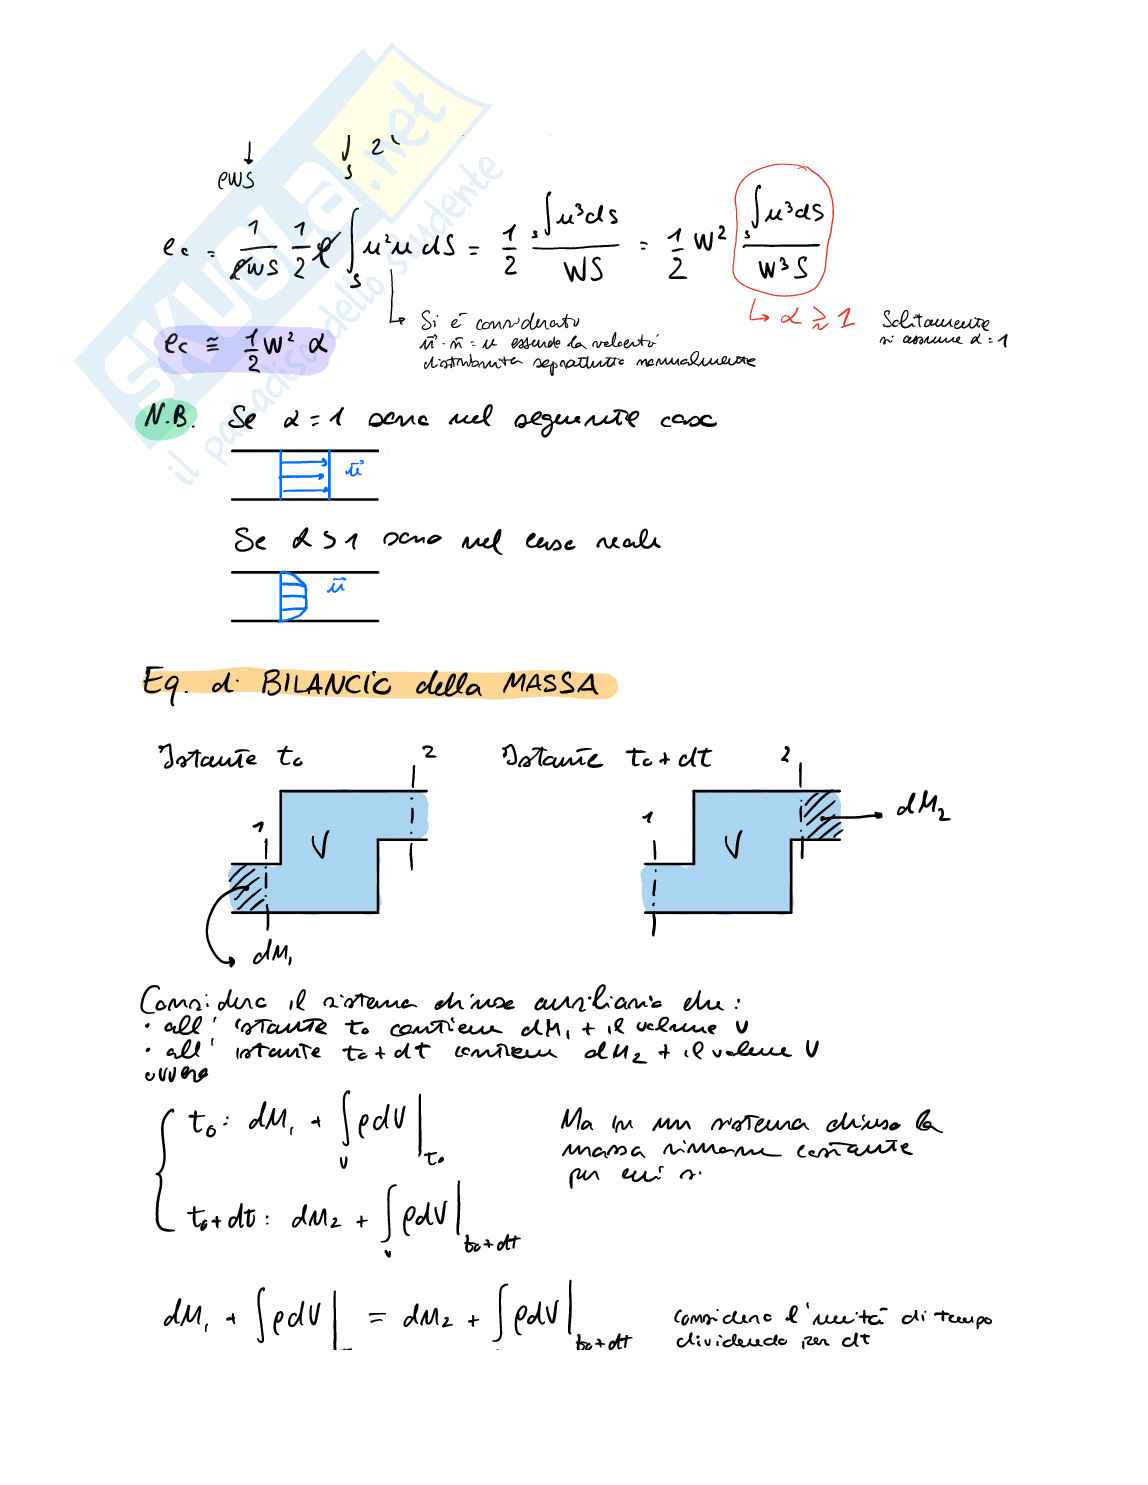 SKUOLA.net
il paradiso dello studente
ρWS
S 2
e_c = 1/(ρWS) 1/2 ρ ∫_S u²u dS = 1/2 (_S∫u³dS)/(WS) = 1/2 W² (_S∫u³dS)/(W³S)
↳ Si è considerato
u⃗·n⃗ = u essendo la velocità
distribuita soprattutto normalmente
↳ α ≥ 1
Solitamente
si assume α=1
e_c ≅ 1/2 W² α
N.B. Se α=1 sono nel seguente caso
u⃗
Se α>1 sono nel caso reale
u⃗
Eq. di BILANCIO della MASSA
Istante t₀
Istante t₀+dt
1
2
V
dM₁
1
2
V
dM₂
Considero il sistema chiuso ausiliario che:
• all'istante t₀ contiene dM₁ + il volume V
• all'istante t₀+dt contiene dM₂ + il volume V
ovvero
t₀: dM₁ + ∫_V ρdV|_t₀
Ma in un sistema chiuso la
massa rimane costante
per cui si
t₀+dt: dM₂ + ∫_V ρdV|_t₀+dt
dM₁ + ∫ρdV| = dM₂ + ∫ρdV|_t₀+dt
considero l'unità di tempo
dividendo per dt